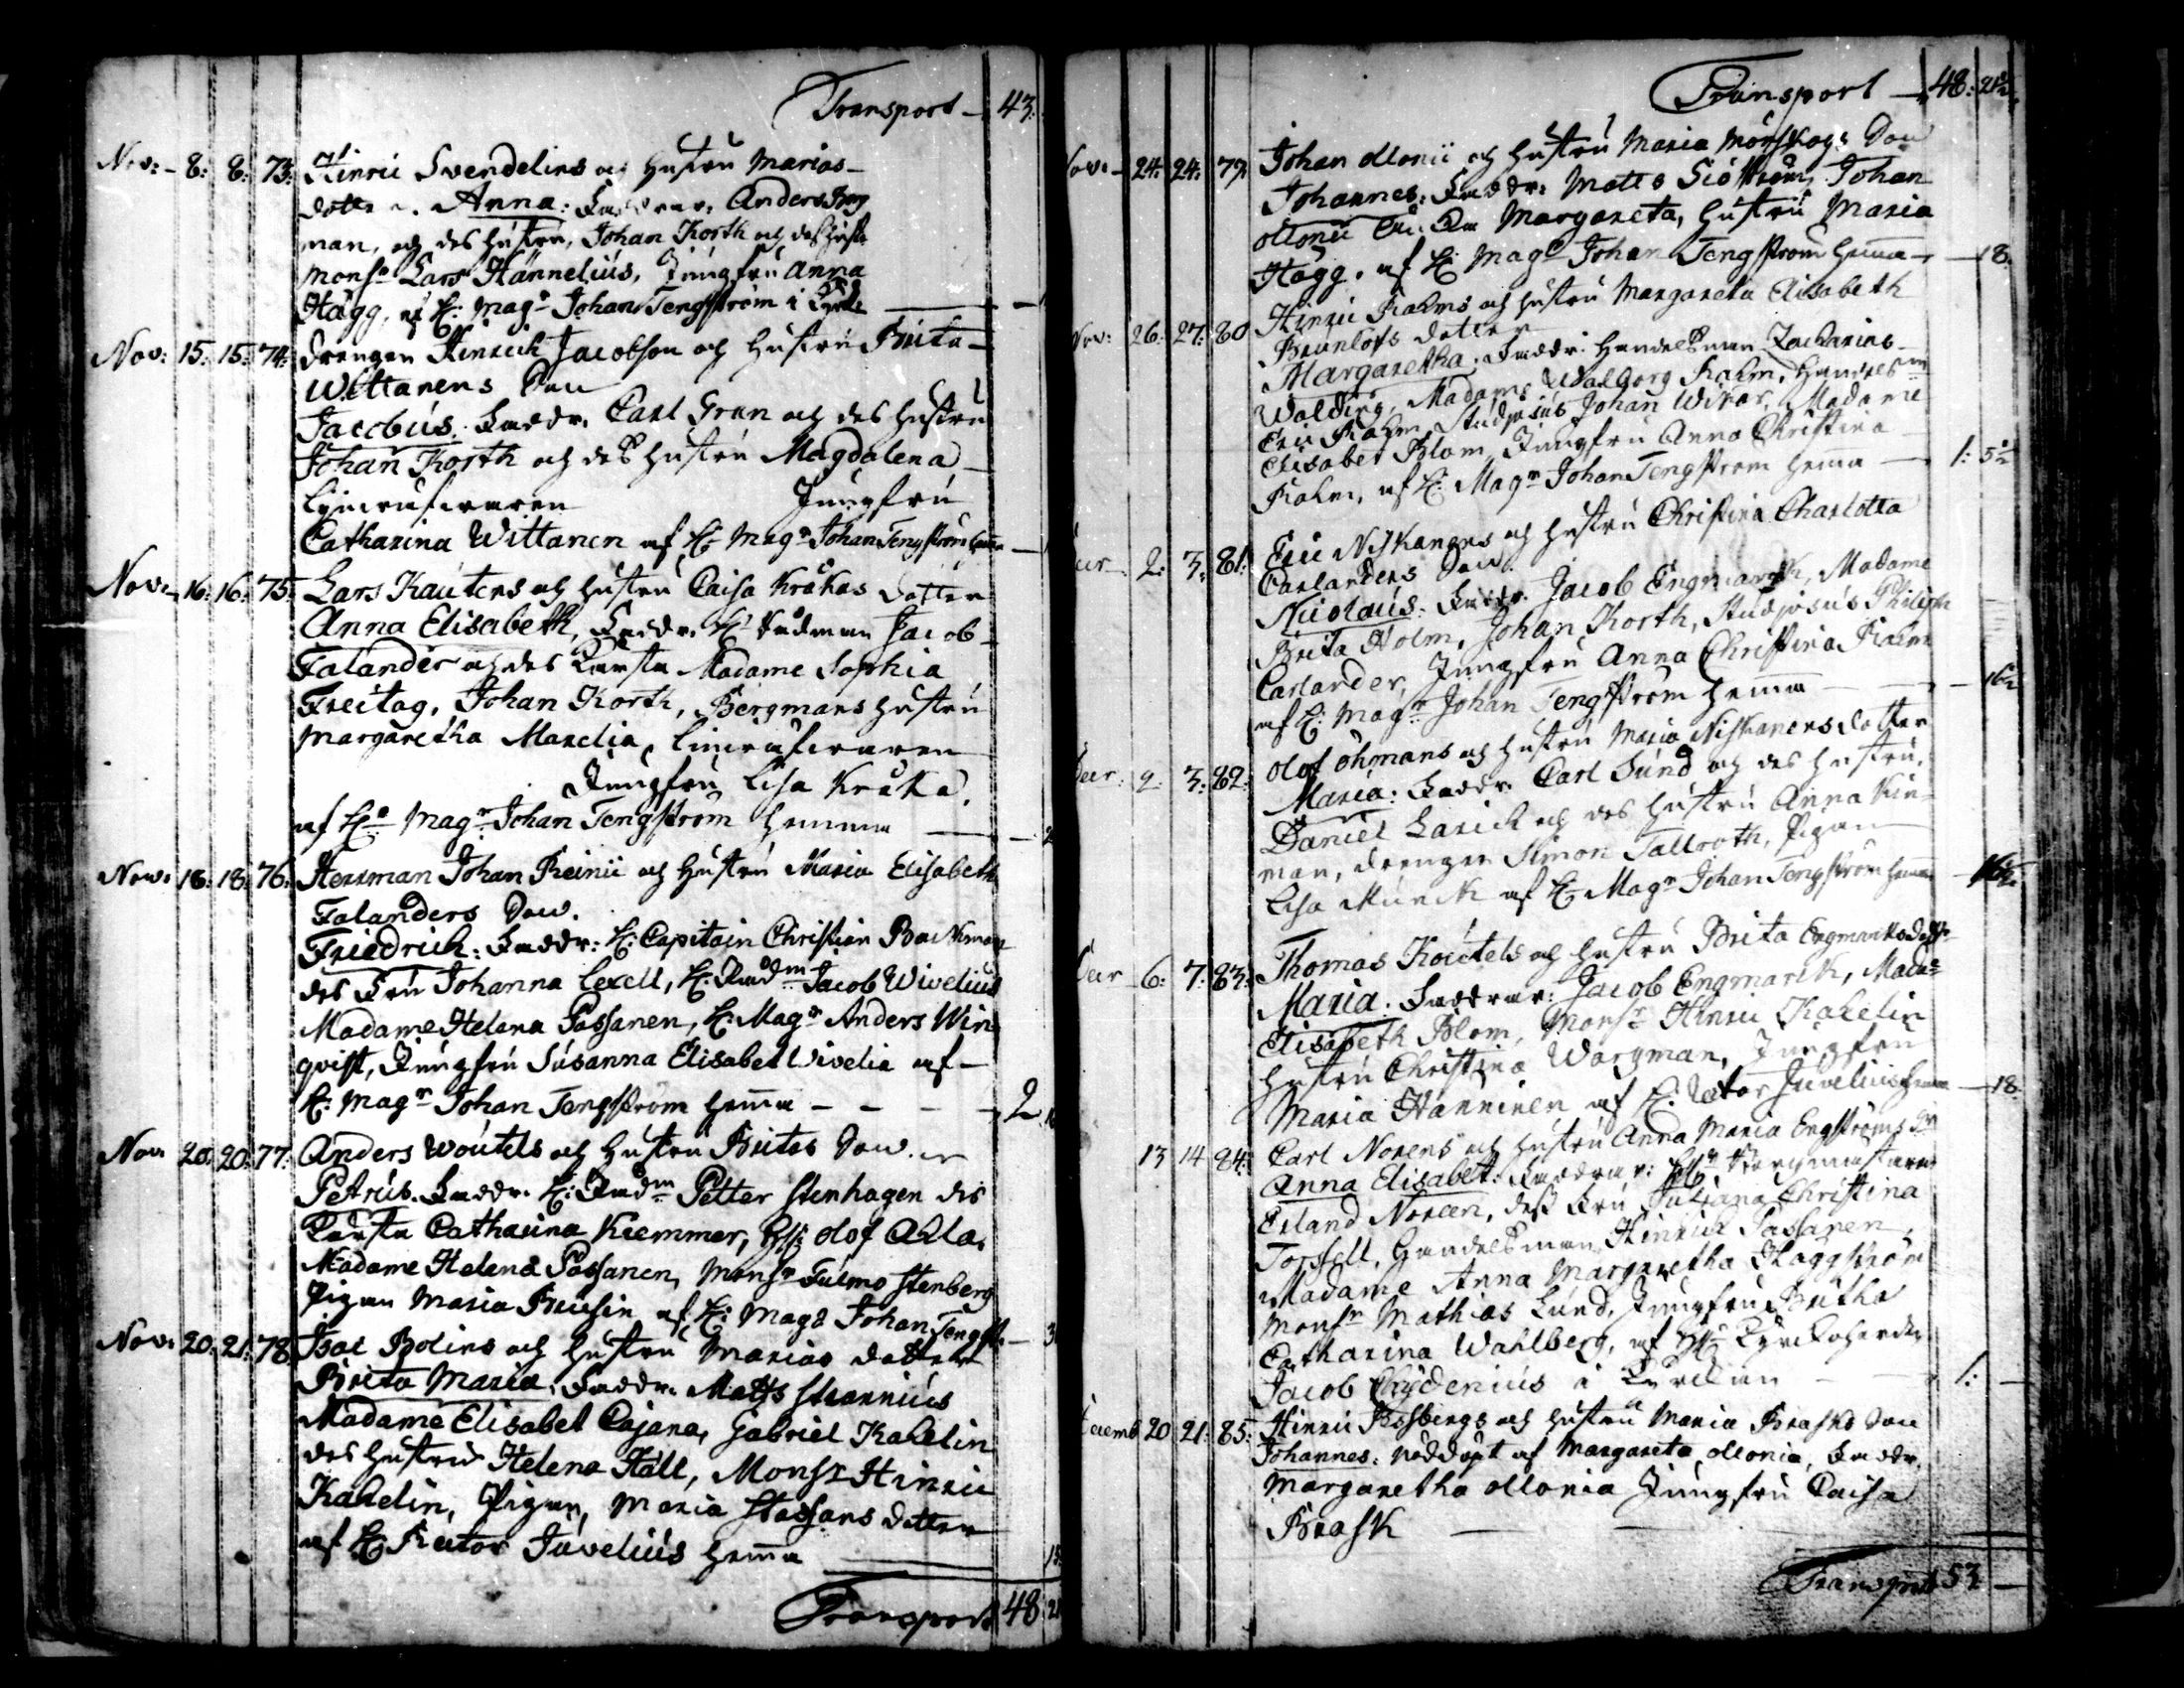 Transport — 43:
Nov: - 8: 8: 73: Hinric Svendelins och Hustru Marias
dotter. Anna: Faddrar, Anders Berg
man, och des Hustru, Johan Korth och des Hustru
Mons:r Lars Hannelius, Jungfru Anna
Hägg, af H: Mag:r Johan Tengström i Kyrk.
Nov: 15: 15: 74: Drengen Hinrich Jacobson och Hustru Brita
Wittanens Son
Jacobus. Faddr. Carl Gran och des Hustru
Johan Korth och des Hustru Magdalena
Jungfru
Catharina Wittanen af H: Mag:r Johan Tengström hemma
Nov: 16: 16: 75: Lars Kautens och Hustru Caisa Kråkas dotter
Anna Elisabeth, Faddr. H: Rådman Jacob
Falander och des Kärsta Madame Sophia
Freitag, Johan Korth, Bergmans Hustru
Margaretha Marelia,
Jungfru Lisa Kråka.
af H:r Mag:r Johan Tengström hemma —
Nov: 18: 18: 76: Herrman Johan Reinii och Hustru Maria Elisabeth
Falanders Son.
Friedrich: Faddr: H: Capitain Christian Backman
des Fru Johanna Lexell, H: Rådm Jacob Wivelius
Madame Helena Passanen, H: Mag:r Anders Win
qvist, Jungfru Susanna Elisabet Wivelia af
H: Mag:r Johan Tengström hemma - - - 2
Nov: 20: 20: 77: Anders Woutels och Hustru Britas Son.
Petrus. Faddr. H: Rådm Petter Stenhagen des
Kärsta Catharina Kremmer, Olof Ahla,
Madame Helena Passanen, Mons:r Stenberg
Pigan Maria af H: Mag:r Johan Tengstr. — 3
Nov: 20: 21: 78 Isac Bolins och Hustru Marias dotter
Brita Maria. Faddr. Matts Strannius
Madame Elisabet Cajana, Gabriel Kahelin
des Hustru Helena Häll, Mons:r Hinric
Kahelin, Pigan, Maria Stassans dotter
af H: Rector Juvelius hemma
Transport 48
Transport — 48: 21½
Nov: - 24: 24: 79 Johan Ollonii och Hustru Maria Son
Johannes: Faddr: Matts Siöström, Johan
Ollonii Margareta, Hustru Maria
Hägg. af H: Mag:r Johan Tengström hemma — 18.
Nov: 26: 27: 80 Hinric Rahms och Hustru Margareta Elisabeth
Brunlöfs dotter
Margaretha. Faddr. Handelsman Zacharias
Walding, Madame Walborg Rahm, Handelsm
Eric Rahm, Studiosus Johan Wikar, Madame
Elisabet Blom, Jungfru Anna Christina
Rahm, af H: Mag:r Johan Tengström hemma — 1: 5½
2: 3: 81: Eric Niskanens och Hustru Christina Charlotta
Carlanders Son.
Nicolaus. Faddr. Jacob Engmarck, Madame
Brita Holm, Johan Korth, Studiosus Philip
Carlander, Jungfru Anna Christina Rahm
af H: Mag:r Johan Tengström hemma — 16½
2: 3: 82: Olof Öhmans och Hustru Maria Niskanens dotter
Maria: Faddr. Carl Sund och des Hustru,
Daniel Larick och des Hustru Anna
man, Drengen Simon Tallroth, Pigan
Lisa Munck af H: Mag:r Johan Tengström hemma 16½
6: 7: 83: Thomas Koutels och Hustru Brita Engmarks dotter
Maria. Faddrar: Jacob Engmarck, Madme
Elisabeth Blom, Mons:r Hinric Kahelin
Hustru Christina Wargman, Jungfru
Maria Hanninen af H: Rector Juvelius hemma — 18.
13 14 84: Carl Norens och Hustru Anna Maria Engströms dr
Anna Elisabet: Faddrar: H:r Borgmästaren
Erland Noreen, dess Fru Juliana Christina
Torssell, Handelsman Hinrick Passanen,
Madame Anna Margaretha Häggström
Mons:r Mathias Lund, Jungfru Britha
Catharina Wahlberg, af Kyrckoherden
Jacob Chydenius i Kyrckan — 1: —
Decemb 20 21: 85: Hinric Forsbergs och Hustru Maria Brasks Son
Johannes: nöddöpt af Margareta Ollonia, Faddr.
Margaretha Ollonia Jungfru Caisa
Brask —
Transport 53 —